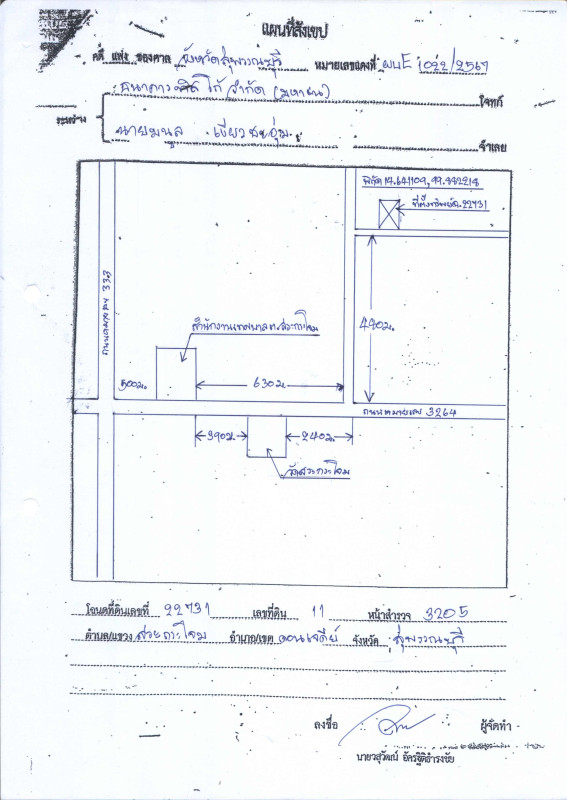 แผนที่สังเขป
คดี แพ่ง ของศาล จังหวัดสุพรรณบุรี หมายเลขแดงที่ ผบE 1022/2567
ระหว่าง
ธนาคารทิสโก้ จำกัด (มหาชน) โจทก์
นายมนูล เขียวชอุ่ม จำเลย
พิกัด 14.641109, 99.992218
ที่ตั้งทรัพย์ฉ.22731
ถนนหมายเลข 333
490ม.
สำนักงานเทศบาลต.สระกระโจม
500ม.
630ม.
ถนนหมายเลข 3264
390ม.
240ม.
วัดสระกระโจม
โฉนดที่ดินเลขที่ 22731 เลขที่ดิน 11 หน้าสำรวจ 3205
ตำบล/แขวง สระกระโจม อำเภอ/เขต ดอนเจดีย์ จังหวัด สุพรรณบุรี
ลงชื่อ ผู้จัดทำ
นายวสุวัฒน์ อัครฐิติธำรงชัย